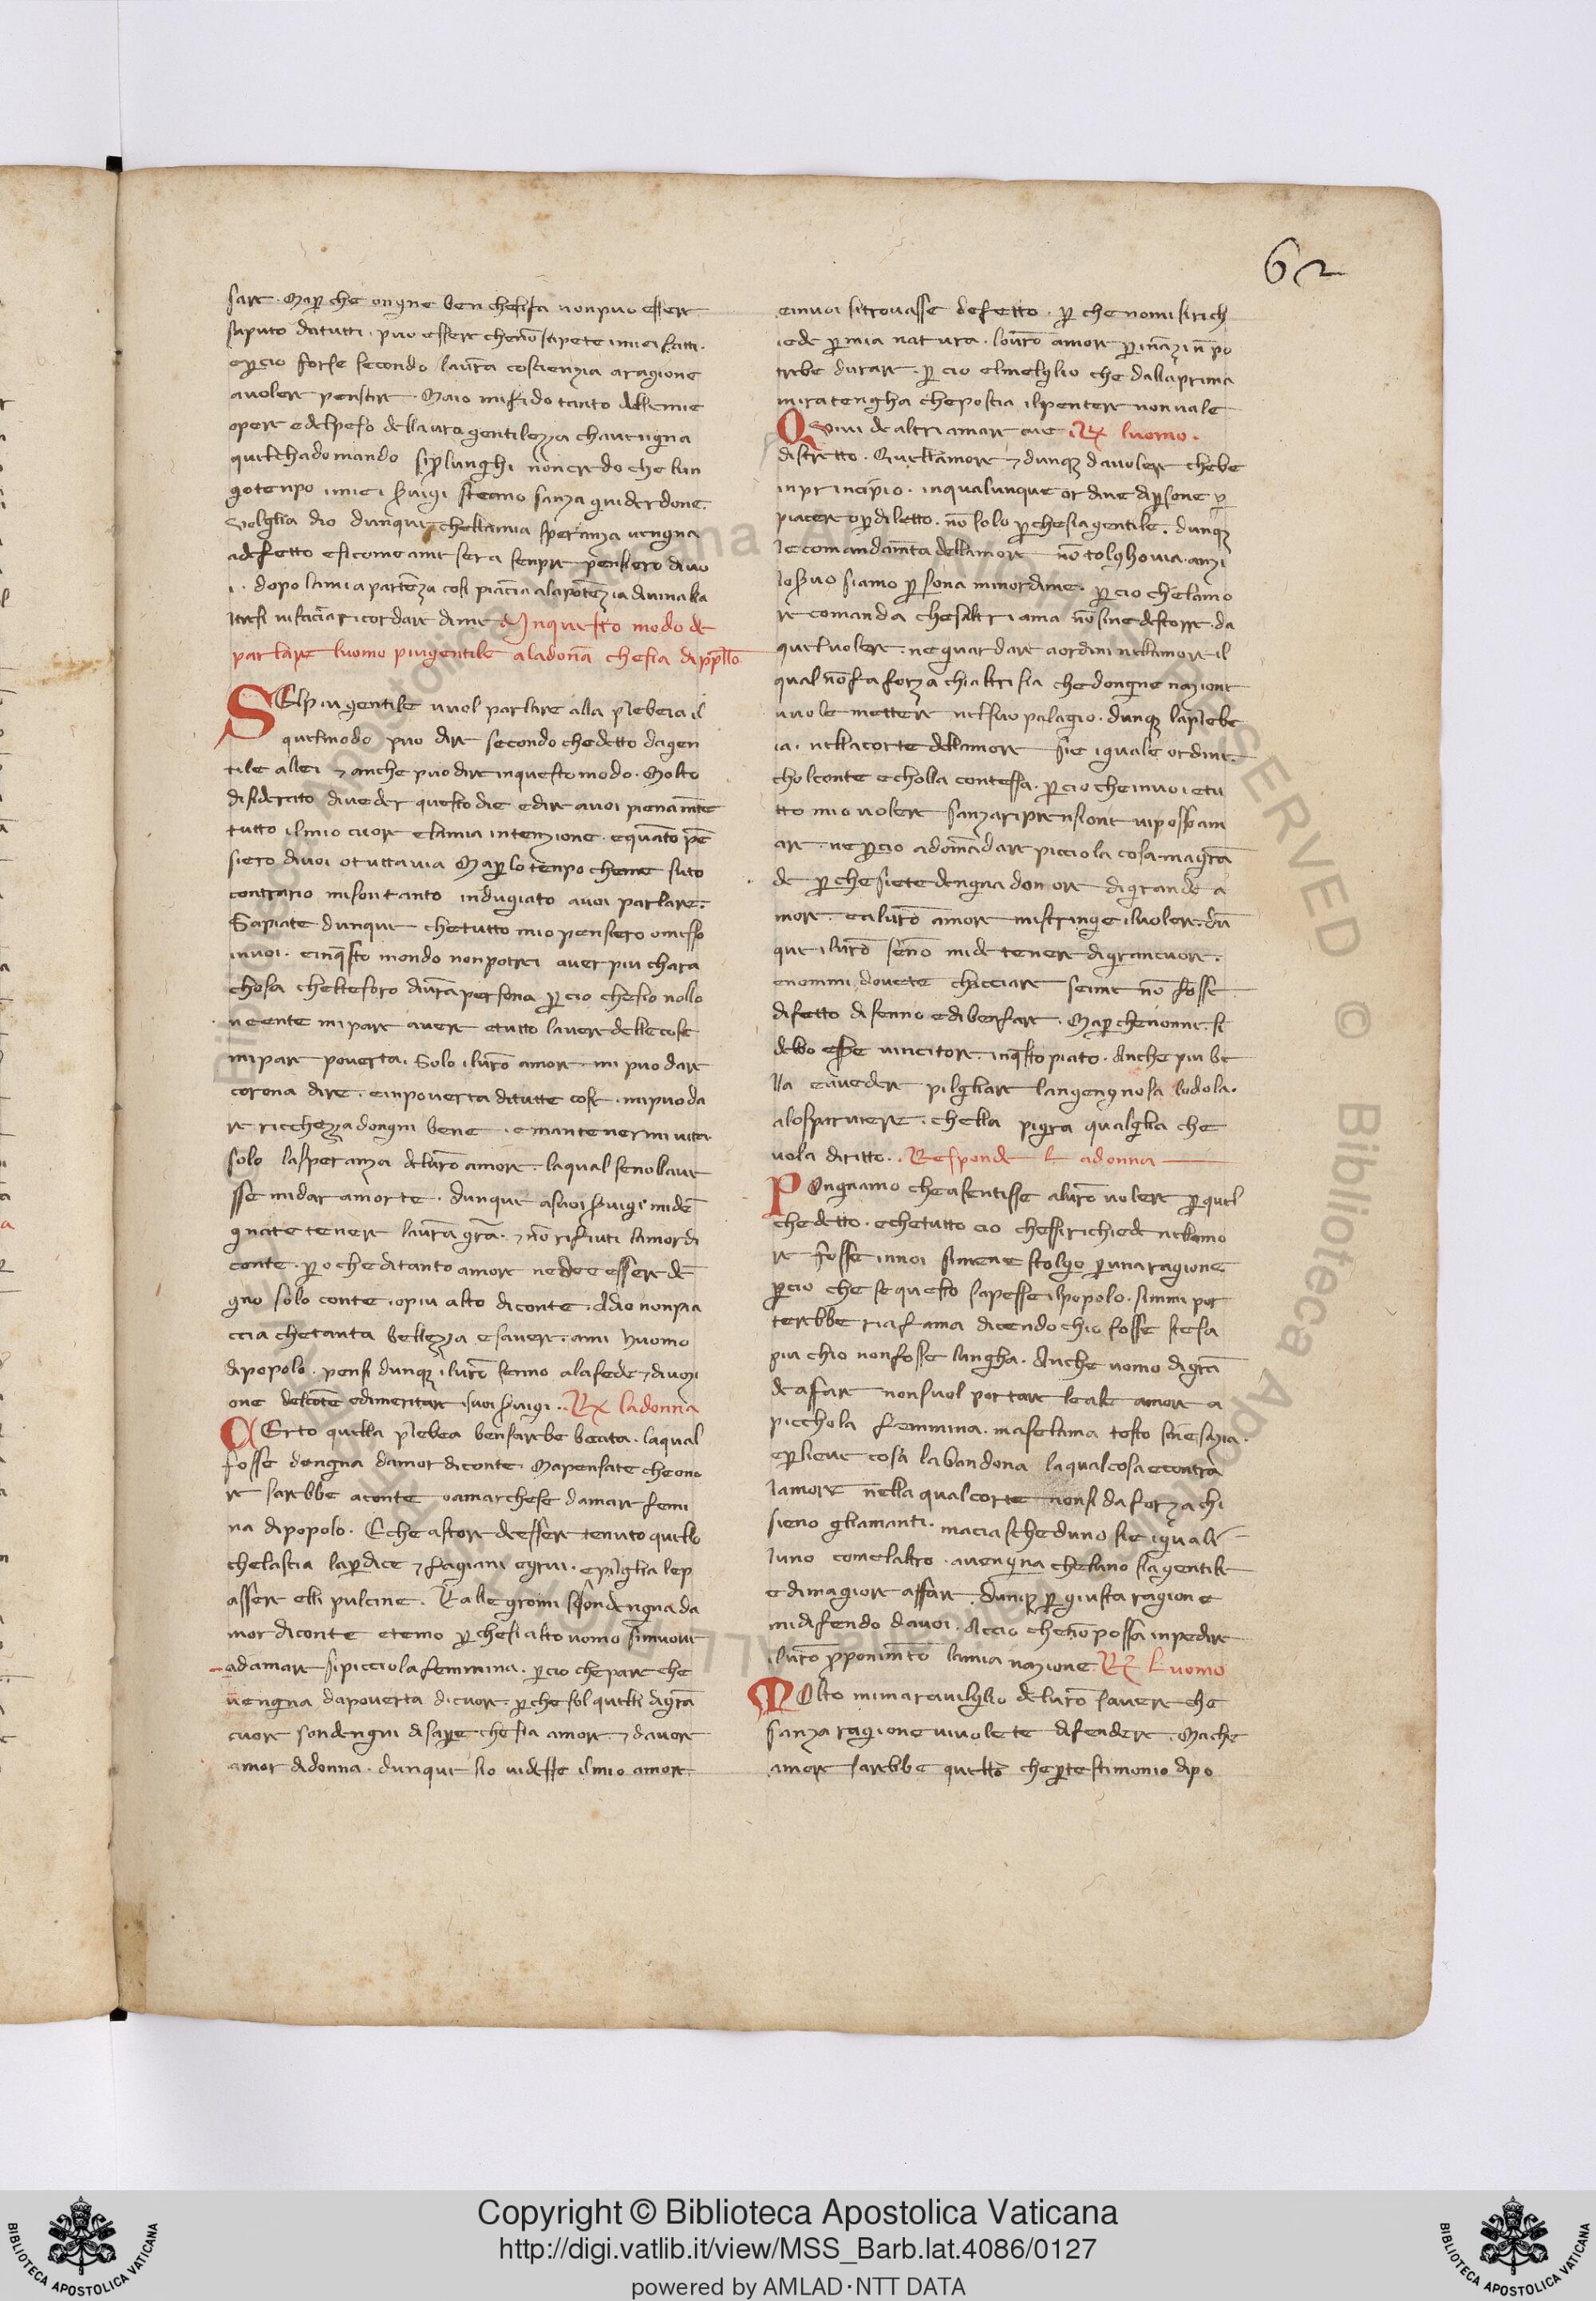 62
sare. Map̄ che ongne ben chesifa nonpuo essere
saputo datutti. puo essere chenō sapete imiei fatti.
ep̄cio forse secondo laūra coscienzia aragione
auolere pensare. Maio mifido tanto delle mie
opere edelpeso dellaura gentilezza chauengna
quelchadomando sip̄lunghi noncredo che lun
gotenpo imiei s̄uigi steano sanza guiderdone.
Volglia dio dunque chellamia speranza uengna
adefetto esicome ame sera senpre pensiero diuo
i. dopo lamia partēza cosi piaccia alapotēzia diuina
uifaccia ricordare dime Inquesto modo de
parlare luomo piugentile aladonā chesia dipp̄lo
SElpiugentile uuol parlare alla plebeia il
quelmodo puo dire secondo chedetto dagen
tile allei ⁊ anche puo dire inquestomodo. Molto
disiderato diueder questo die edire auoi pienamēte
tutto ilmio cuore elamia intenzione. equāto pē
siero diuoi otuttauia Map̄ lo tenpo cheme suto
contrario misontanto indugiato auoi parlare.
Sapiate dunque chetutto mio pensiero omesso
inuoi. einq̄sto mondo nonpotrei auer piu chara
chosa chelteforo diūra persona p̄ cio chesio nollo
neente mipare auere etutto lauere delle cose
mipar pouerta. Solo iluro amore mi puo dare
corona dire. einpouerta ditutte cose. mipuo da
re ricchezza dongni bene. emantenermi uita.
solo lasperanza deluro amore. laqual senollaue
sse midar amorte. dunque asuoi s̄uigi midē
gniate tenere laūra grā. ⁊ nō rifiuti lamordi
conte. p̄o che ditanto amore nedee essere dē
gno solo conte. opiu alto diconte. Adio nonpia
ccia chetanta bellezza esauere. ami huomo
dipopolo. pensi dunq; iluro senno alafede ⁊ diuozi
one delcōte edimeritare isuoi s̄uigi. R̄ ladonna
CErto quella plebea bensarebe beata. laqual
fosse dengna damor diconte. Mapensate cheono
re sarebbe aconte oamarchese damare femi
na dipopolo. Eche astore deesser tenuto quello
chelascia lap̄dice ⁊ fagiani egrui. epilglia lep
assere elli pulcine. Rallegromi sison dengna da
mor diconte etemo p̄ chesi alto uomo simuoue
adamare sipicciola femmina. p̄cio chepare che
uengna dapouerta dicuore. p̄ che sol quelli digrā
cuore sondengni disap̄e chesia amore. ⁊ dauere
amor didonna. dunque sio uidesse ilmio amore
einuoi sitrouasse defetto. p̄ che nomisirich
iede p̄ mia natura. louro amore p̄ ināzi nō po
trebe durare. p̄ cio elmelglio che dallaprima
miratengha cheposcia ilpentere nonuale
QViui de altri amare cue R̄ luomo.
distretto. Quellamore ⁊ dunq; dauolere chebe
inprincipio. inqualunque ordine dip̄sone p̄
piacere op̄ diletto. nō solo p̄ chesia gentile. dunq;
lecomandamēta dellamore nō tolghouia. anzi
los̄uo siamo p̄sona minordine. p̄ cio chelamo
re comanda chesaltri ama nōsine destorre. da
quel uolere. ne guardare aordini nellamore il
qual nōfa forza chialtri sia chedongne nazione
uuole mettere nelsuo palagio. dunq; laplebe
ia. nellacorte dellamore sie iguale ordine.
cholconte echolla contessa. p̄ cio che inuoi etu
tto mio uolere sanzariprensione uiposso am
are. ne p̄cio adomādare picciola cosa. magrā
de p̄ che siete dengna don ore digrande a
more. ealuro amore mistringe iluolere. dū
que iluro senno mide tenere digrancuore.
enommi douete chacciare seime nō fosse
difetto disenno edibenfare. Map̄ chenonne. si
debo esse uincitore. inq̄sto piato. Anche piu be
lla eauedere pilgliare langengnosa lodola.
alosparuiere. chella pigra qualglia che
uola diritto. Responde Ladonna
POngnamo cheasentisse aluro uolere p̄ quel
chedetto. echetutto cio chessirichiede nellamo
re fosse inuoi simene stolgo p̄ una ragione
p̄cio che se questo sapesse ilpopolo. simmi por
terebbe ria fama dicendo chio fosse stesa
piu chio nonfosse lungha. Anche uomo digrā
de affare nonsuol portare leale amore a
picchola femmina. maselama tosto senesazia.
ep̄lieue cosa labandona laqualcosa econtra
lamore nella qual corte nonsi da forza chi
sieno gliamanti. maciascheduno sie iguale
luno comelaltro. auengna cheluno sia gentile
edimagiore affare. Dunq; p̄ giusta ragione
midifendo dauoi. Accio chenō possa inpedire
iluro p̄ponimēto lamia nazione. R̄ Luomo
MOlto mimarauilglio deluro sauere che
sanza ragione uiuolete difendere. Mache
amore sarebbe quello chep̄ testimonio dipo
Copyright © Biblioteca Apostolica Vaticana
http://digi.vatlib.it/view/MSS_Barb.lat.4086/0127
powered by AMLAD·NTT DATA